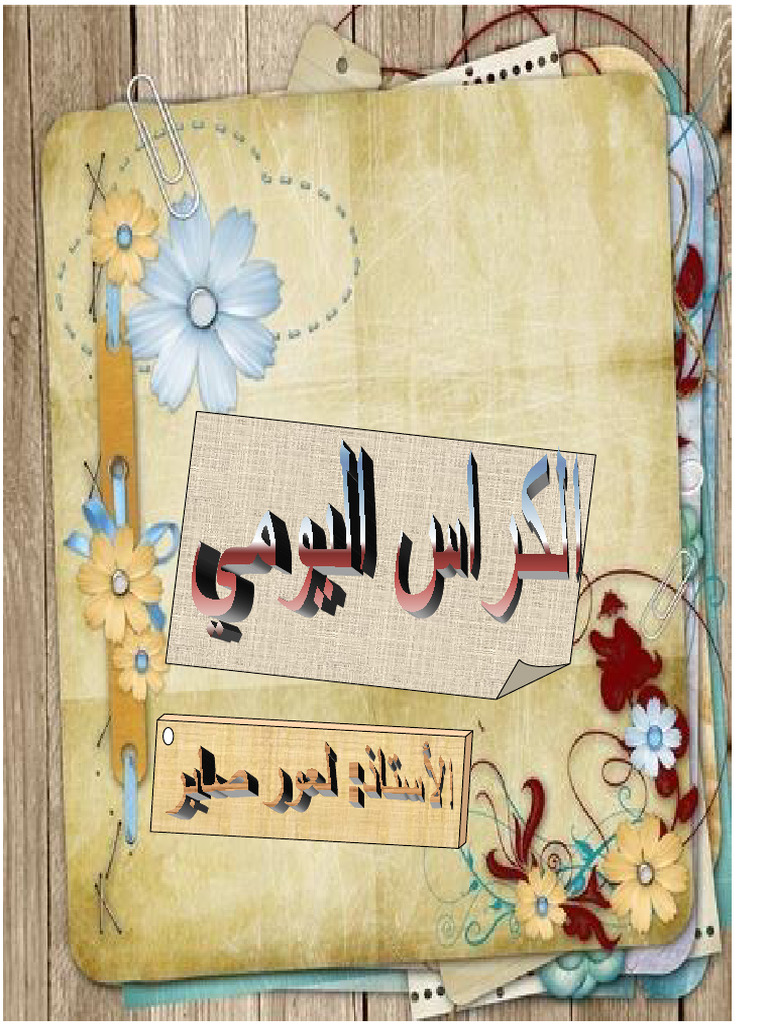 الكراس اليومي
الأستاذ: لعور صابر